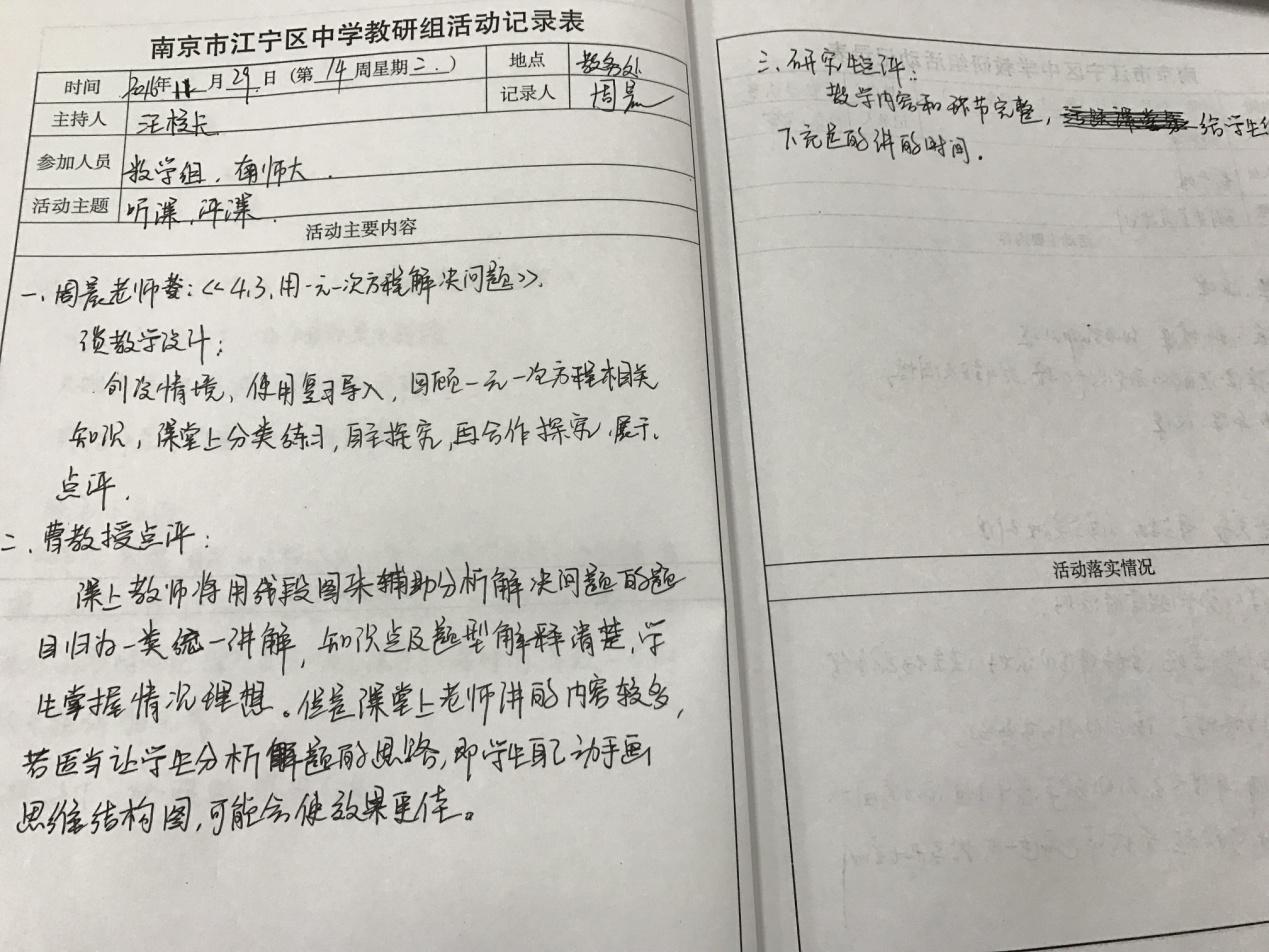 南京市江宁区中学教研组活动记录表
时间 2016年11月29日(第14周星期二.) 地点 教务处
记录人 周晨
主持人 汪校长
参加人员 数学组, 南师大.
活动主题 听课, 评课.
活动主要内容
一. 周晨老师: <<4.3. 用一元一次方程解决问题>>.
教学设计:
创设情境, 使用复习导入, 回顾一元一次方程相关
知识, 课堂上分类练习, 自主探究, 再合作探究, 展示.
点评.
二. 曹教授点评:
课上教师将用线段图来辅助分析解决问题的题
目归为一类统一讲解, 知识点及题型解释清楚, 学
生掌握情况理想。但是课堂上老师讲的内容较多,
若适当让学生分析解题的思路, 即学生自己动手画
思维结构图, 可能会使效果更佳。
三. 研究生点评:
教学内容和环节完整, 给学生
下充足的讲的时间.
活动落实情况